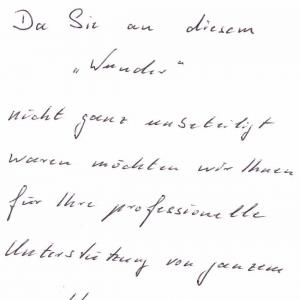 Da Sie an diesem
„Wunder“
nicht ganz unbeteiligt
waren möchten wir Ihnen
für Ihre professionelle
Unterstützung von ganzem